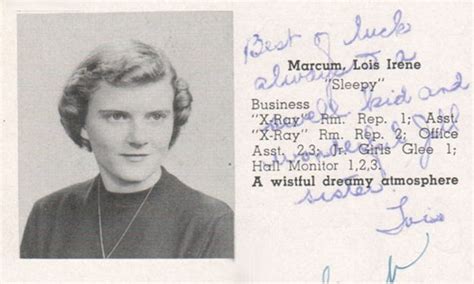 Best of luck
always to a
swell kid and
wonderful
sister!
Lois
Marcum, Lois Irene
"Sleepy"
Business
"X-Ray" Rm. Rep. 1; Asst.
"X-Ray" Rm. Rep. 2; Office
Asst. 2,3; Jr. Girls Glee 1;
Hall Monitor 1,2,3.
A wistful dreamy atmosphere